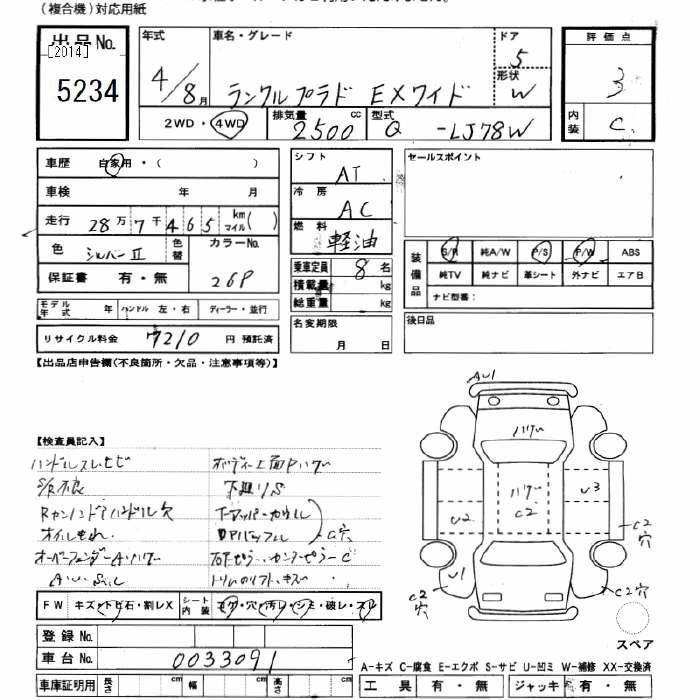 (複合機)対応用紙
出品No.
[2014]
5234
年式
4/8月
車名・グレード
ランクルプラド EXワイド
ドア
5
形状
W
評価点
3
内装
C
2WD・4WD
排気量
2500
cc
型式
Q-LJ78W
車歴 自家用・( )
車検 年 月
走行 28万7千465 km マイル( )
色 シルバーⅡ
色替
カラーNo.
26P
保証書 有・無
モデル年式 年 ハンドル 左・右 ディーラー・並行
リサイクル料金 7210 円 預託済
シフト
AT
冷房
AC
燃料
軽油
乗車定員 8 名
積載量 kg
総重量 kg
名変期限
月 日
セールスポイント
装備品
S/R 純A/W P/S P/W ABS
純TV 純ナビ 革シート 外ナビ エアB
ナビ型番:
後日品
【出品店申告欄(不良箇所・欠品・注意事項等)】
【検査員記入】
ハンドルスレヒビ
ボディー上面Pハゲ
S/R不良
下廻りS
ハンドル欠
オイルもれ
C穴
オーバーフェンダーAハゲ
トリムのリフト、キズ
FW キズ・トビ石・割レX
シート内装 コゲ・穴・汚レ・シミ・破レ・スレ
登録No.
車台No. 0033091
車庫証明用 長さ cm 幅 cm 高さ cm
AU1
ハゲ
ハゲ
C2
U3
U2
U1
C2
穴
C2
穴
C2
穴
スペア
A-キズ C-腐食 E-エクボ S-サビ U-凹ミ W-補修 XX-交換済
工具 有・無 ジャッキ 有・無